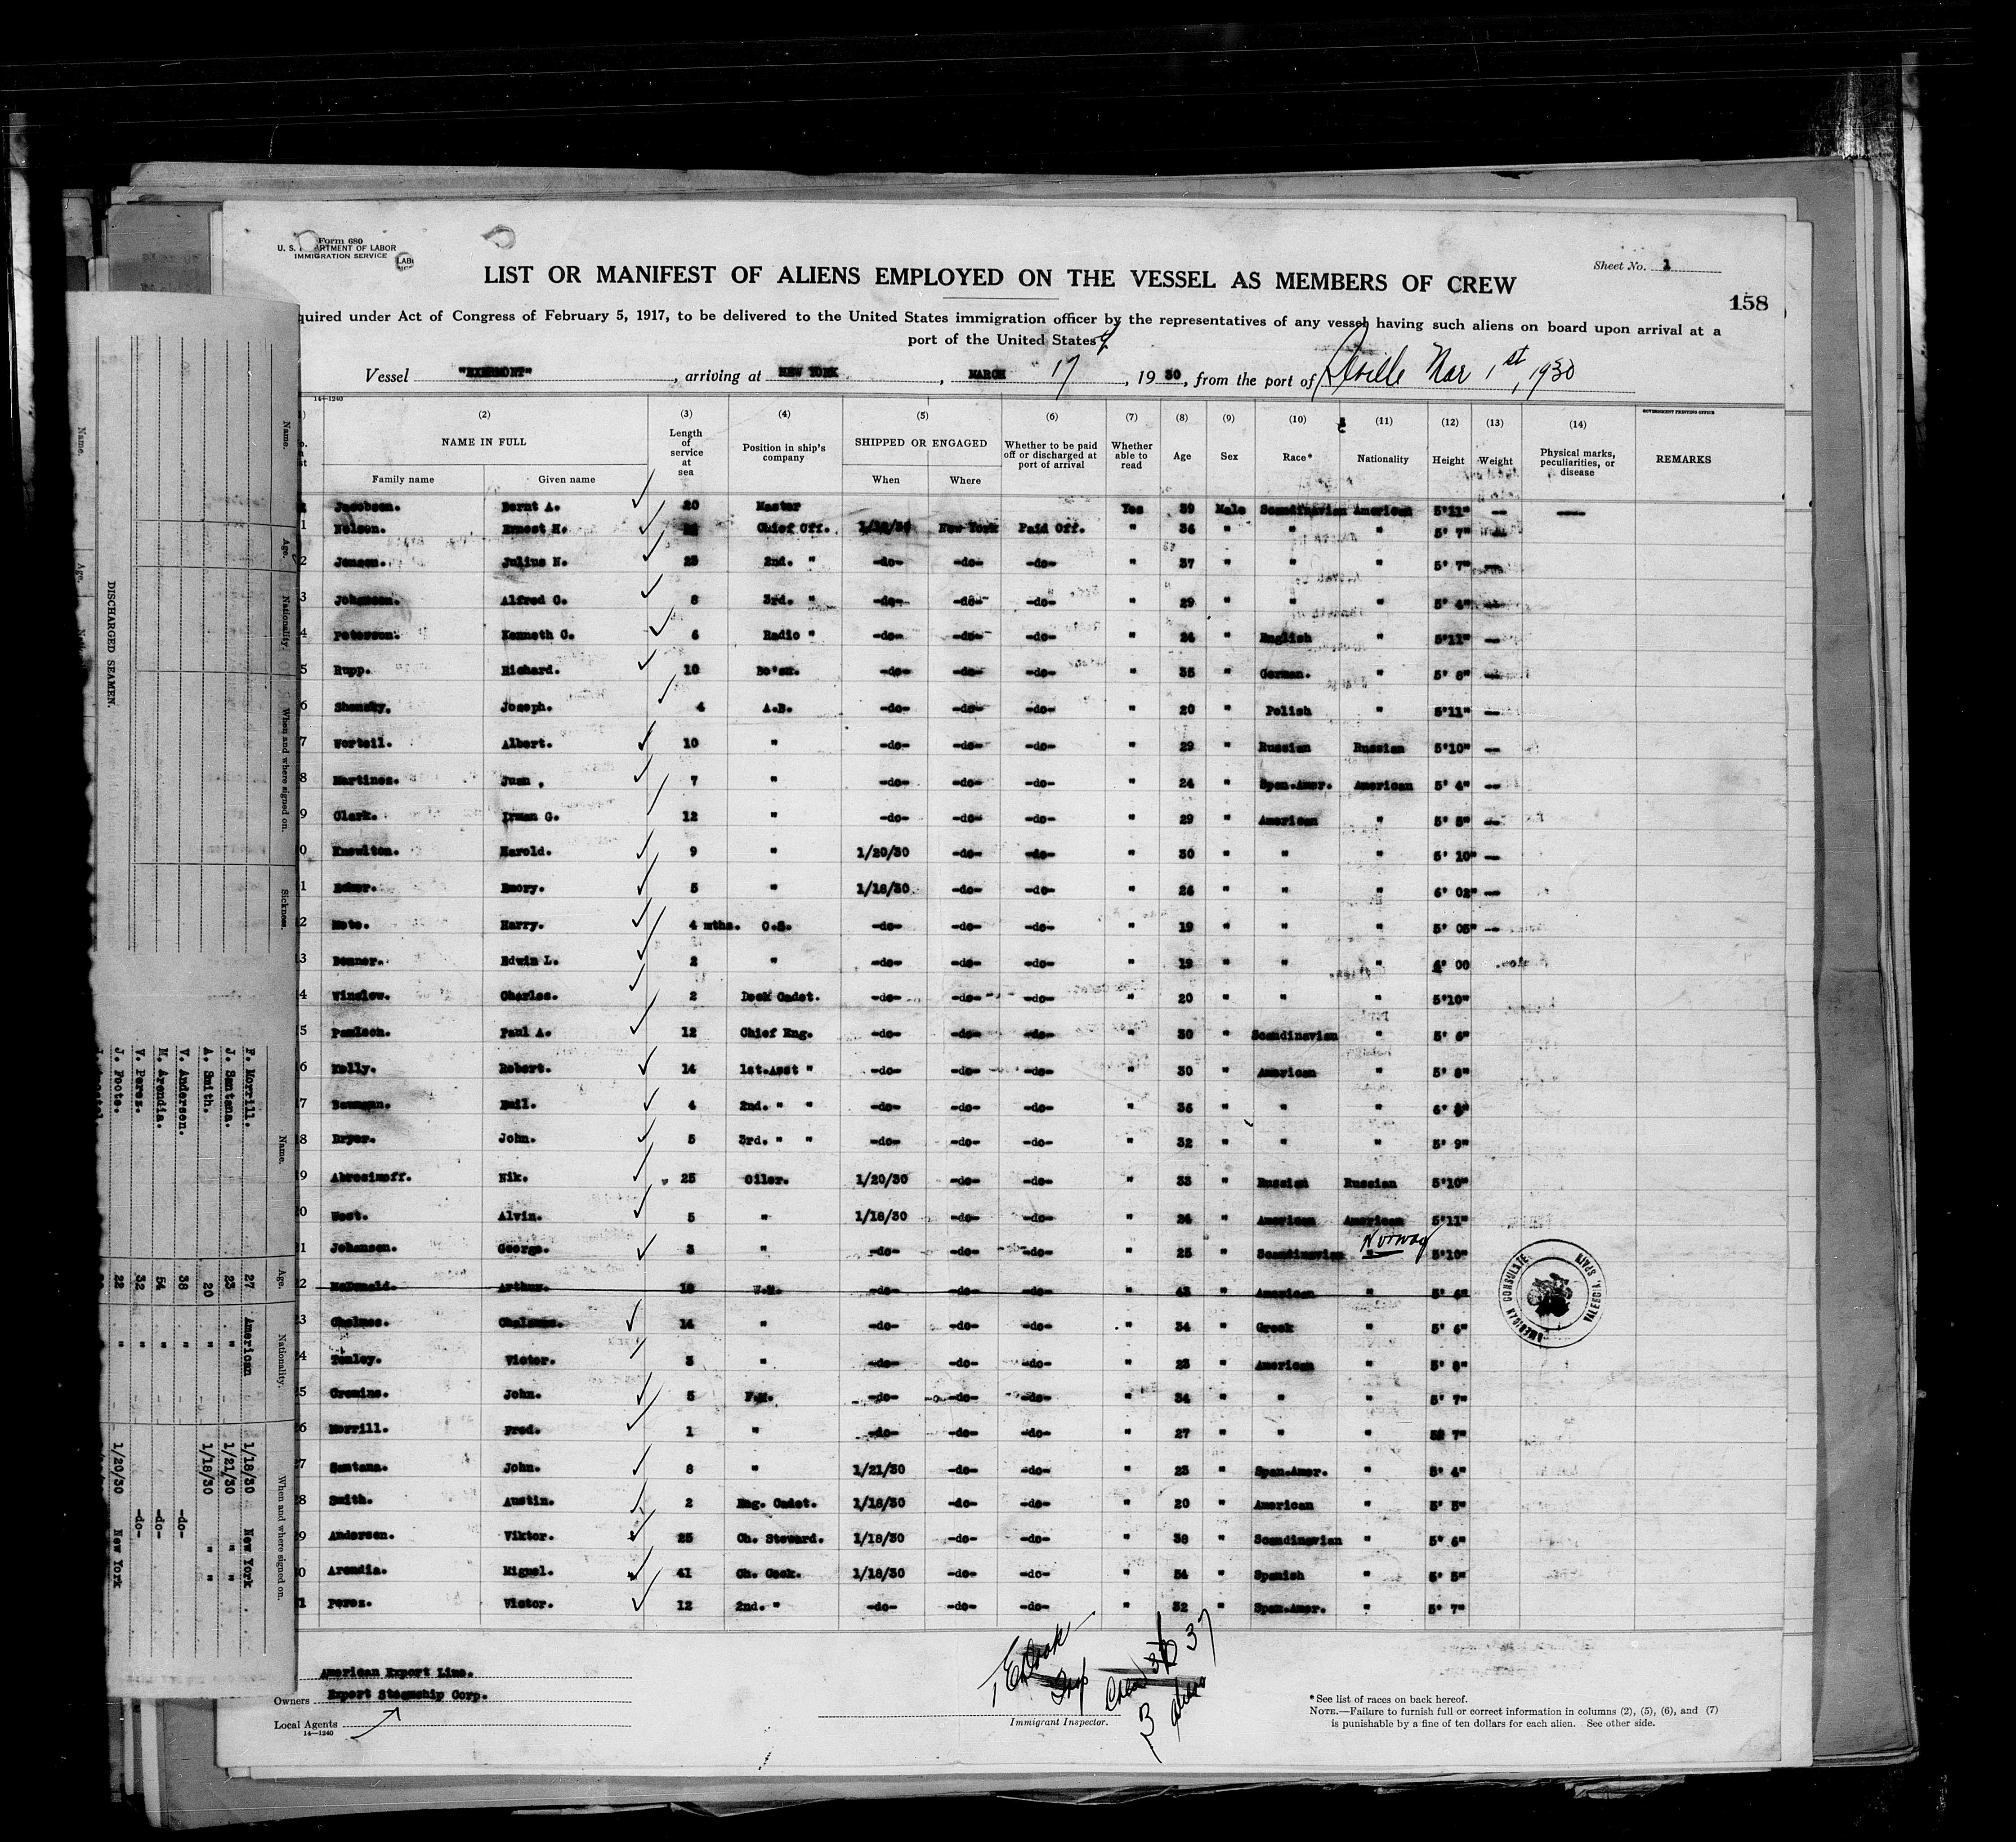 Form 680
U. S. ARTMENT OF LABOR
IMMIGRATION SERVICE
Sheet No. 1
LIST OR MANIFEST OF ALIENS EMPLOYED ON THE VESSEL AS MEMBERS OF CREW
158
quired under Act of Congress of February 5, 1917, to be delivered to the United States immigration officer by the representatives of any vessel having such aliens on board upon arrival at a
port of the United States
Vessel "EXERMONT", arriving at NEW YORK, MARCH 17, 1930, from the port of Seville Mar 1st, 1930
14—1240
GOVERNMENT PRINTING OFFICE
(2) (3) (4) (5) (6) (7) (8) (9) (10) (11) (12) (13) (14)
NAME IN FULL Length of service at sea Position in ship's company SHIPPED OR ENGAGED Whether to be paid off or discharged at port of arrival Whether able to read Age Sex Race* Nationality Height Weight Physical marks, peculiarities, or disease REMARKS
Family name Given name When Where
Jacobsen. Bernt A. 20 Master Yes 39 Male Scandinavian American 5'11" — —
1 Nelson. Ernest H. Chief Off. 1/18/30 New York Paid Off. " 36 " " " 5' 7" —
2 Jensen. Julius N. 23 2nd. " -do- -do- -do- " 37 " " " 5' 7" —
3 Johansen. Alfred G. 8 3rd. " -do- -do- -do- " 29 " " " 5' 4" —
4 Peterson. Kenneth C. 6 Radio " -do- -do- -do- " 24 " English " 5'11" —
5 Rupp. Richard. 10 Bo'sn. -do- -do- -do- " 35 " German. " 5' 8" —
6 Shensky. Joseph. 4 A.B. -do- -do- -do- " 20 " Polish " 5'11" —
7 Worteil. Albert. 10 " -do- -do- -do- " 29 " Russian Russian 5'10" —
8 Martinez. Juan. 7 " -do- -do- -do- " 24 " Span.Amer. American 5' 4" —
9 Clark. Irman G. 12 " -do- -do- -do- " 29 " American " 5' 5" —
0 Knowlton. Harold. 9 " 1/20/30 -do- -do- " 30 " " " 5' 10" —
1 Emory. 5 " 1/18/30 -do- -do- " 24 " " " 6' 02" —
2 Harry. 4 mths. O.S. -do- -do- -do- " 19 " " " 5' 05" —
3 Edwin L. 2 " -do- -do- -do- " 19 " " " 6' 00
4 Winslow. Charles. 2 Deck Cadet. -do- -do- -do- " 20 " " " 5'10"
5 Paulson. Paul A. 12 Chief Eng. -do- -do- -do- " 30 " Scandinavian " 5' 6"
6 Kelly. Robert. 14 1st.Asst " -do- -do- -do- " 30 " American " 5' 8"
7 Emil. 4 2nd. " " -do- -do- -do- " 36 " " " 6'
8 Dryer. John. 5 3rd. " " -do- -do- -do- " 32 " " " 5' 9"
19 Abrosimoff. Nik. 25 Oiler. 1/20/30 -do- -do- " 33 " Russian Russian 5'10"
20 West. Alvin. 5 " 1/18/30 -do- -do- " 24 " American American 5'11"
1 Johansen. George. 3 " -do- -do- -do- " 25 " Scandinavian " Norway 5'10"
2 McDonald. Arthur. 18 W.T. -do- -do- -do- " 43 " American " 5' 4"
3 Cholmes. 14 " -do- -do- -do- " 34 " Greek " 5' 6"
4 Temley. Victor. 3 " -do- -do- -do- " 23 " American " 5' 8"
25 Cremins. John. 5 F.M. -do- -do- -do- " 34 " " " 5' 7"
6 Morrill. Fred. 1 " -do- -do- -do- " 27 " " " 5' 7"
7 Santana. John. 8 " 1/21/30 -do- -do- " 23 " Span.Amer. " 5' 4"
8 Smith. Austin. 2 Eng. Cadet. 1/18/30 -do- -do- " 20 " American " 5' 5"
29 Andersen. Viktor. 25 Ch. Steward. 1/18/30 -do- -do- " 38 " Scandinavian " 5' 6"
0 Arendia. Miguel. 41 Ch. Cook. 1/18/30 -do- -do- " 54 " Spanish " 5' 5"
1 Perez. Victor. 12 2nd. " -do- -do- -do- " 32 " Span.Amer. " 5' 7"
AMERICAN CONSULATE VALENCIA, SPAIN
American Export Line.
Owners Export Steamship Corp.
Local Agents
14—1240
Immigrant Inspector.
Crew 37
3 aliens
*See list of races on back hereof.
NOTE.—Failure to furnish full or correct information in columns (2), (5), (6), and (7)
is punishable by a fine of ten dollars for each alien. See other side.
DISCHARGED SEAMEN.
Name. Age. Nationality. When and where signed on. Sickness.
Name. Age. Nationality. When and where signed on.
F. Morrill. 27 American 1/18/30 New York
J. Santana. 23 " 1/21/30 "
A. Smith. 20 " 1/18/30 "
V. Andersen. 38 " -do-
M. Arendia. 54 " -do-
V. Perez. 32 " -do-
J. Foote. 22 " 1/20/30 New York